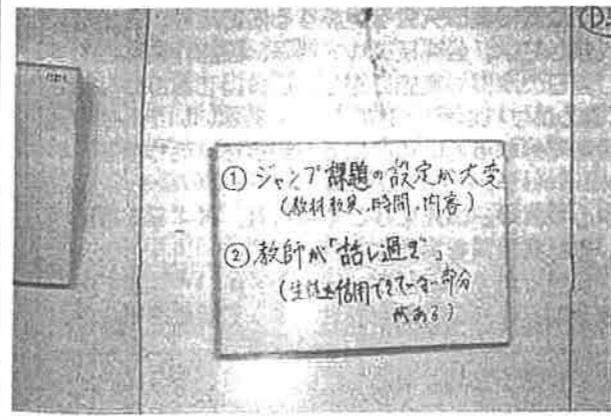 ① ジャンプ課題の設定が大変
(教科教具、時間、内容)
② 教師が「話し過ぎ」
(生徒を信用できていない部分
がある)